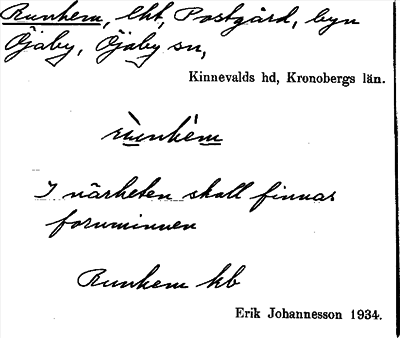 Runhem, lht, Postgård, byn
Öjaby, Öjaby sn,
Kinnevalds hd, Kronobergs län.
rùnhém
I närheten skall finnas
fornminnen
Runhem kb
Erik Johannesson 1934.